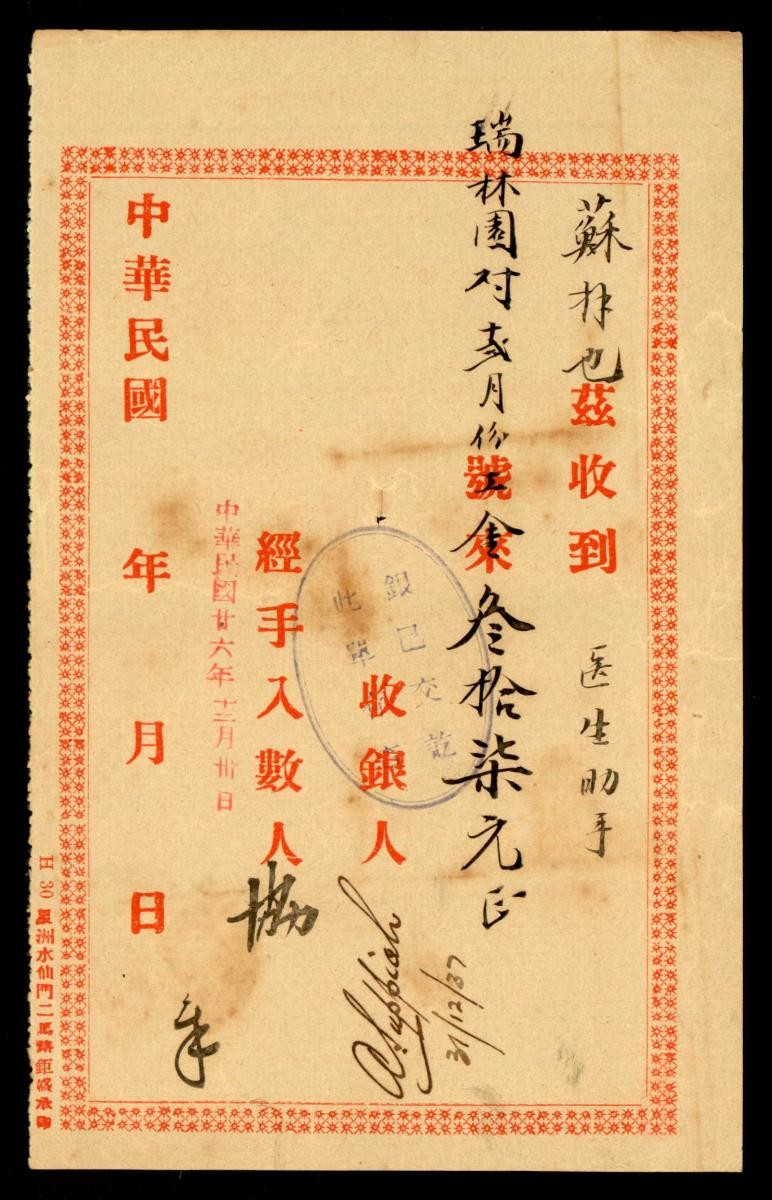 蘇 也茲收到 医生助手
瑞林園对十弍月份工金叁拾柒元正
號來
銀已交訖
此單
收銀人
A. Suppiah
31/12/37
經手入數人 協
中華民國廿六年十二月卅日
中華民國 年 月 日
H 30 星洲水仙門二馬路鉅盛承印